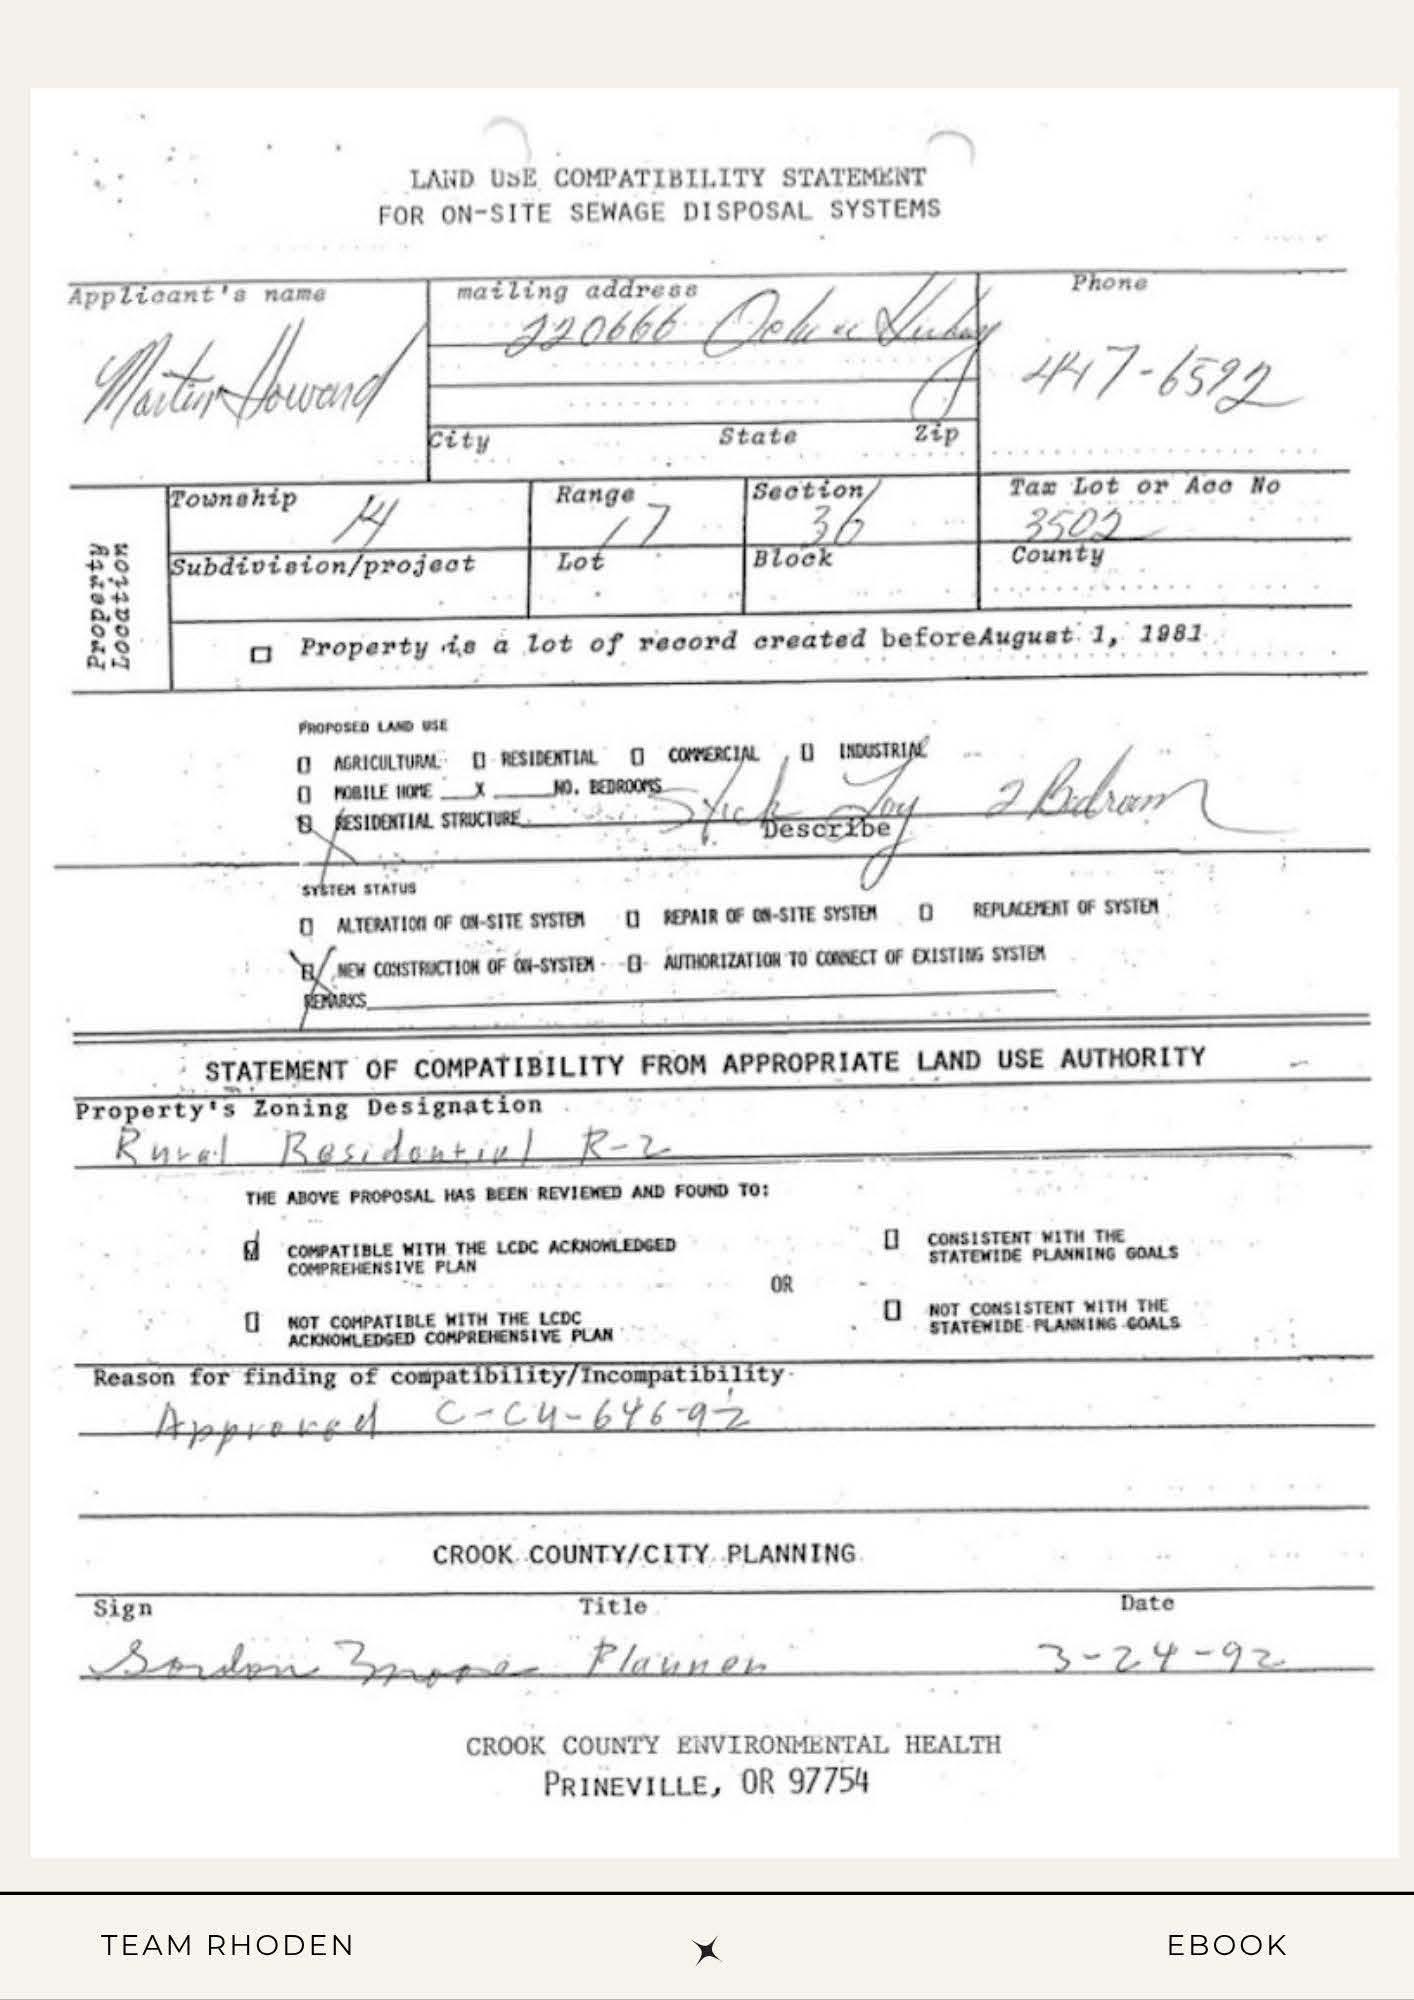 LAND USE COMPATIBILITY STATEMENT
FOR ON-SITE SEWAGE DISPOSAL SYSTEMS
Applicant's name
mailing address
Phone
Martin Howard
220666
447-6592
City State Zip
Township
Range
Section
Tax Lot or Acc No
14
17
36
3502
Subdivision/project
Lot
Block
County
Property
Location
Property is a lot of record created beforeAugust 1, 1981
PROPOSED LAND USE
AGRICULTURAL RESIDENTIAL COMMERCIAL INDUSTRIAL
MOBILE HOME ___X ___NO. BEDROOMS
RESIDENTIAL STRUCTURE Stick 2 Bedroom
Describe
SYSTEM STATUS
ALTERATION OF ON-SITE SYSTEM REPAIR OF ON-SITE SYSTEM REPLACEMENT OF SYSTEM
NEW CONSTRUCTION OF ON-SYSTEM AUTHORIZATION TO CONNECT OF EXISTING SYSTEM
REMARKS
STATEMENT OF COMPATIBILITY FROM APPROPRIATE LAND USE AUTHORITY
Property's Zoning Designation
Rural Residential R-2
THE ABOVE PROPOSAL HAS BEEN REVIEWED AND FOUND TO:
COMPATIBLE WITH THE LCDC ACKNOWLEDGED
COMPREHENSIVE PLAN
CONSISTENT WITH THE
STATEWIDE PLANNING GOALS
OR
NOT COMPATIBLE WITH THE LCDC
ACKNOWLEDGED COMPREHENSIVE PLAN
NOT CONSISTENT WITH THE
STATEWIDE PLANNING GOALS
Reason for finding of compatibility/Incompatibility
Approved C-CU-646-92
CROOK COUNTY/CITY PLANNING
Sign Title Date
Gordon Moore Planner 3-24-92
CROOK COUNTY ENVIRONMENTAL HEALTH
PRINEVILLE, OR 97754
TEAM RHODEN
EBOOK